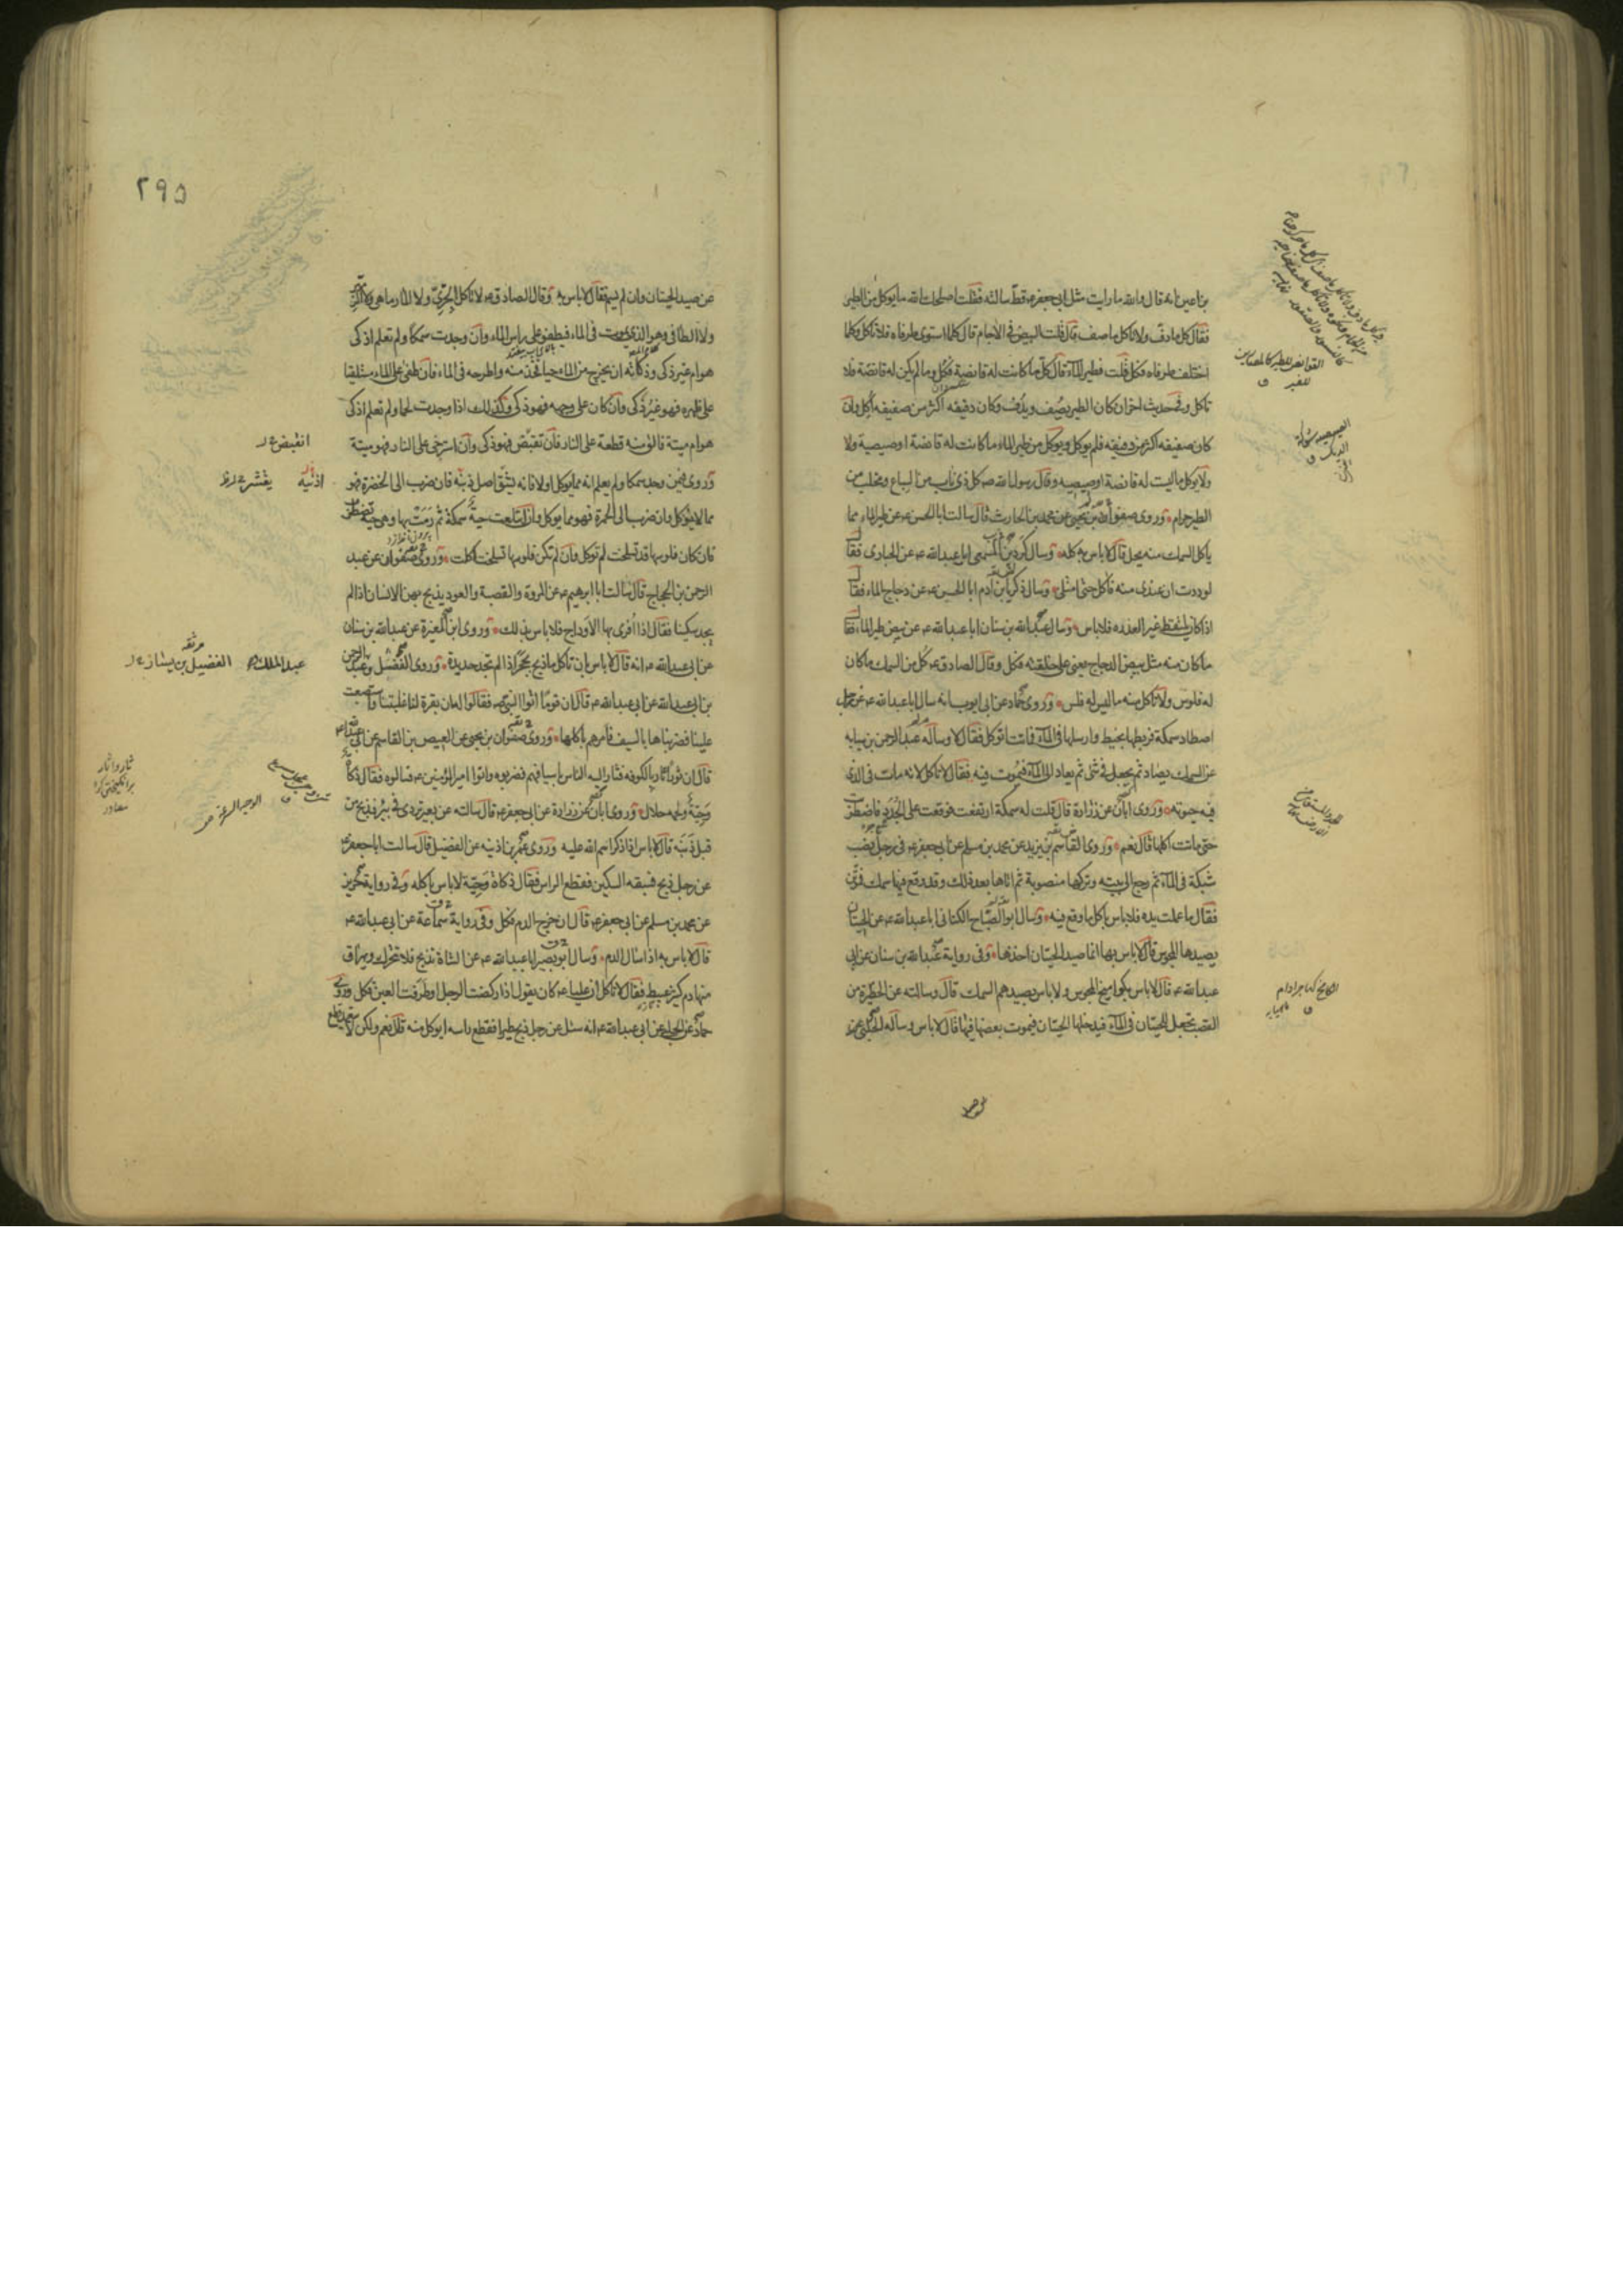 بن اعين انه قال والله ما رايت مثل ابي جعفر ع قط سالته فقلت اصلحك الله ما يوكل من الطير
فقال كل ما دف ولا تاكل ما صف قال قلت البيض في الاجام قال كلما استوى طرفاه فلا تاكل وكلما
اختلف طرفاه فكل قلت فطير الماء قال كل ما كانت له قانصة فكل وما لم يكن له قانصة فلا
تاكل وفي حديث اخر ان كان الطير يصف ويدف وكان دفيفه اكثر من صفيفه اكل وان
كان صفيفه اكثر من دفيفه فلم يوكل ويوكل من طير الماء ما كانت له قانصة او صيصية ولا
ولا يوكل ما ليست له قانصة او صيصيه وقال رسول الله ص كل ذي ناب من السباع ومخلب من
الطير حرام وروى صفوان بن يحيى عن محمد بن الحارث قال سالت ابا الحسن ع عن طير الماء مما
ياكل السمك منه يحل قال لا باس به كله وسال كردين المسمعي ابا عبد الله ع عن الحبارى فقال
لوددت ان عندي منه فاكل حتى امتلي وسال زكريا بن ادم ابا الحسن ع عن دجاج الماء فقال
اذا كان يلتقط غير العذره فلا باس وسال عبد الله بن سنان ابا عبد الله ع عن بيض طير الماء فقال
ما كان منه مثل بيض الدجاج يعني على خلقته فكل وقال الصادق ع كل من السمك ما كان
له فلوس ولا تاكل منه ما ليس له فلس وروى حماد عن ابي ايوب انه سال ابا عبد الله ع عن رجل
اصطاد سمكة فربطها بخيط وارسلها في الماء فماتت اتوكل فقال لا وساله عبد الرحمن بن سيابه
عن السمك يصاد ثم يجعل في شئ ثم يعاد الى الماء فيموت فيه فقال لا تاكل لانه مات في الذي
فيه حيوته وروى ابان عن زرارة قال قلت له سمكة ارتفعت فوقعت على الجدد فاضطربت
حتى ماتت اكلها قال نعم وروى القاسم بن يزيد عن محمد بن مسلم عن ابي جعفر ع في رجل نصب
شبكة في الماء ثم رجع الى بيته وتركها منصوبة ثم اتاها بعد ذلك وقد وقع فيها سمك فمتن
فقال ما عملت يده فلا باس باكل ما وقع فيه وسال ابو الصباح الكناني ابا عبد الله ع عن الحيتان
يصيدها المجوس قال لا باس بها انما صيد الحيتان اخذها وفي رواية عبد الله بن سنان عن ابي
عبد الله ع قال لا باس بكواميخ المجوس ولا باس بصيدهم السمك قال وسالته عن الحظيرة من
القصب تجعل للحيتان في الماء فيدخلها الحيتان فيموت بعضها فيها قال لا باس وساله الحلبي عن
٢٩٥
عن صيد الحيتان وان لم يسم فقال لا باس به وقال الصادق ع لا تاكل الجري ولا المارماهي ولا الزمير
ولا الطافي وهو الذي يموت في الماء فيطفو على راس الماء وان وجدت سمكا ولم تعلم اذكي
هو ام غير ذكي وذكاته ان يخرج من الماء حيا فخذ منه واطرحه في الماء فان طفى على الماء مستلقيا
على ظهره فهو غير ذكي وان كان على وجهه فهو ذكي وكذلك اذا وجدت لحما ولم تعلم اذكي
هو ام ميتة فالق منه قطعة على النار فان تقبض فهو ذكي وان استرخى على النار فهو ميتة
وروى فيمن وجد سمكا ولم يعلم انه مما يوكل او لا فانه يشق اصل ذنبه فان ضرب الى الخضرة فهو
مما لا يوكل وان ضرب الى الحمرة فهو مما يوكل وان ابتلعت حية سمكة ثم رمت بها وهي حية تضطرب
فان كان فلوسها قد تسلخت لم توكل وان لم تكن فلوسها تسلخت اكلت وروى صفوان عن عبد
الرحمن بن الحجاج قال سالت ابا ابرهيم ع عن المروة والقصبة والعود يذبح بهن الانسان اذا لم
يجد سكينا فقال اذا افرى بها الاوداج فلا باس بذلك وروى ابن المغيرة عن عبد الله بن سنان
عن ابي عبد الله ع انه قال لا باس بان تاكل ما ذبح بحجر اذا لم تجد حديدة وروى الفضل وعبد الرحمن
بن ابي عبد الله عن ابي عبد الله ع قال ان قوما اتوا النبي ص فقالوا له ان بقرة لنا غلبتنا واستصعبت
علينا فضربناها بالسيف فامرهم باكلها وروى صفوان بن يحيى عن العيص بن القاسم عن ابي عبد الله ع
قال ان ثورا ثار بالكوفه فثار اليه الناس باسيافهم فضربوه واتوا امير المؤمنين ع فسالوه فقال ذكاة
وحية ولحمه حلال وروى ابان عن زرارة عن ابي جعفر ع قال سالته عن بعير تردى في بئر فذبح من
قبل ذنبه قال لا باس اذا ذكر اسم الله عليه وروى عمر بن اذينه عن الفضيل قال سالت ابا جعفر ع
عن رجل ذبح فسبقه السكين فقطع الراس فقال ذكاة وحية لا باس باكله وفي رواية حريز
عن محمد بن مسلم عن ابي جعفر ع قال ان خرج الدم فكل وفي رواية سماعة عن ابي عبد الله ع
قال لا باس به اذا سال الدم وسال ابو بصير ابا عبد الله ع عن الشاة تذبح فلا تتحرك ويهراق
منها دم كثير عبيط فقال لا تاكل ان عليا ع كان يقول اذا ركضت الرجل او طرفت العين فكل وروى
حماد عن الحلبي عن ابي عبد الله ع انه سئل عن رجل ذبح طيرا فقطع راسه ايوكل منه قال نعم ولكن لا يتعمد قطع
انقبض
اذنيه يقشر
عبد الملك الفضيل بن يسار